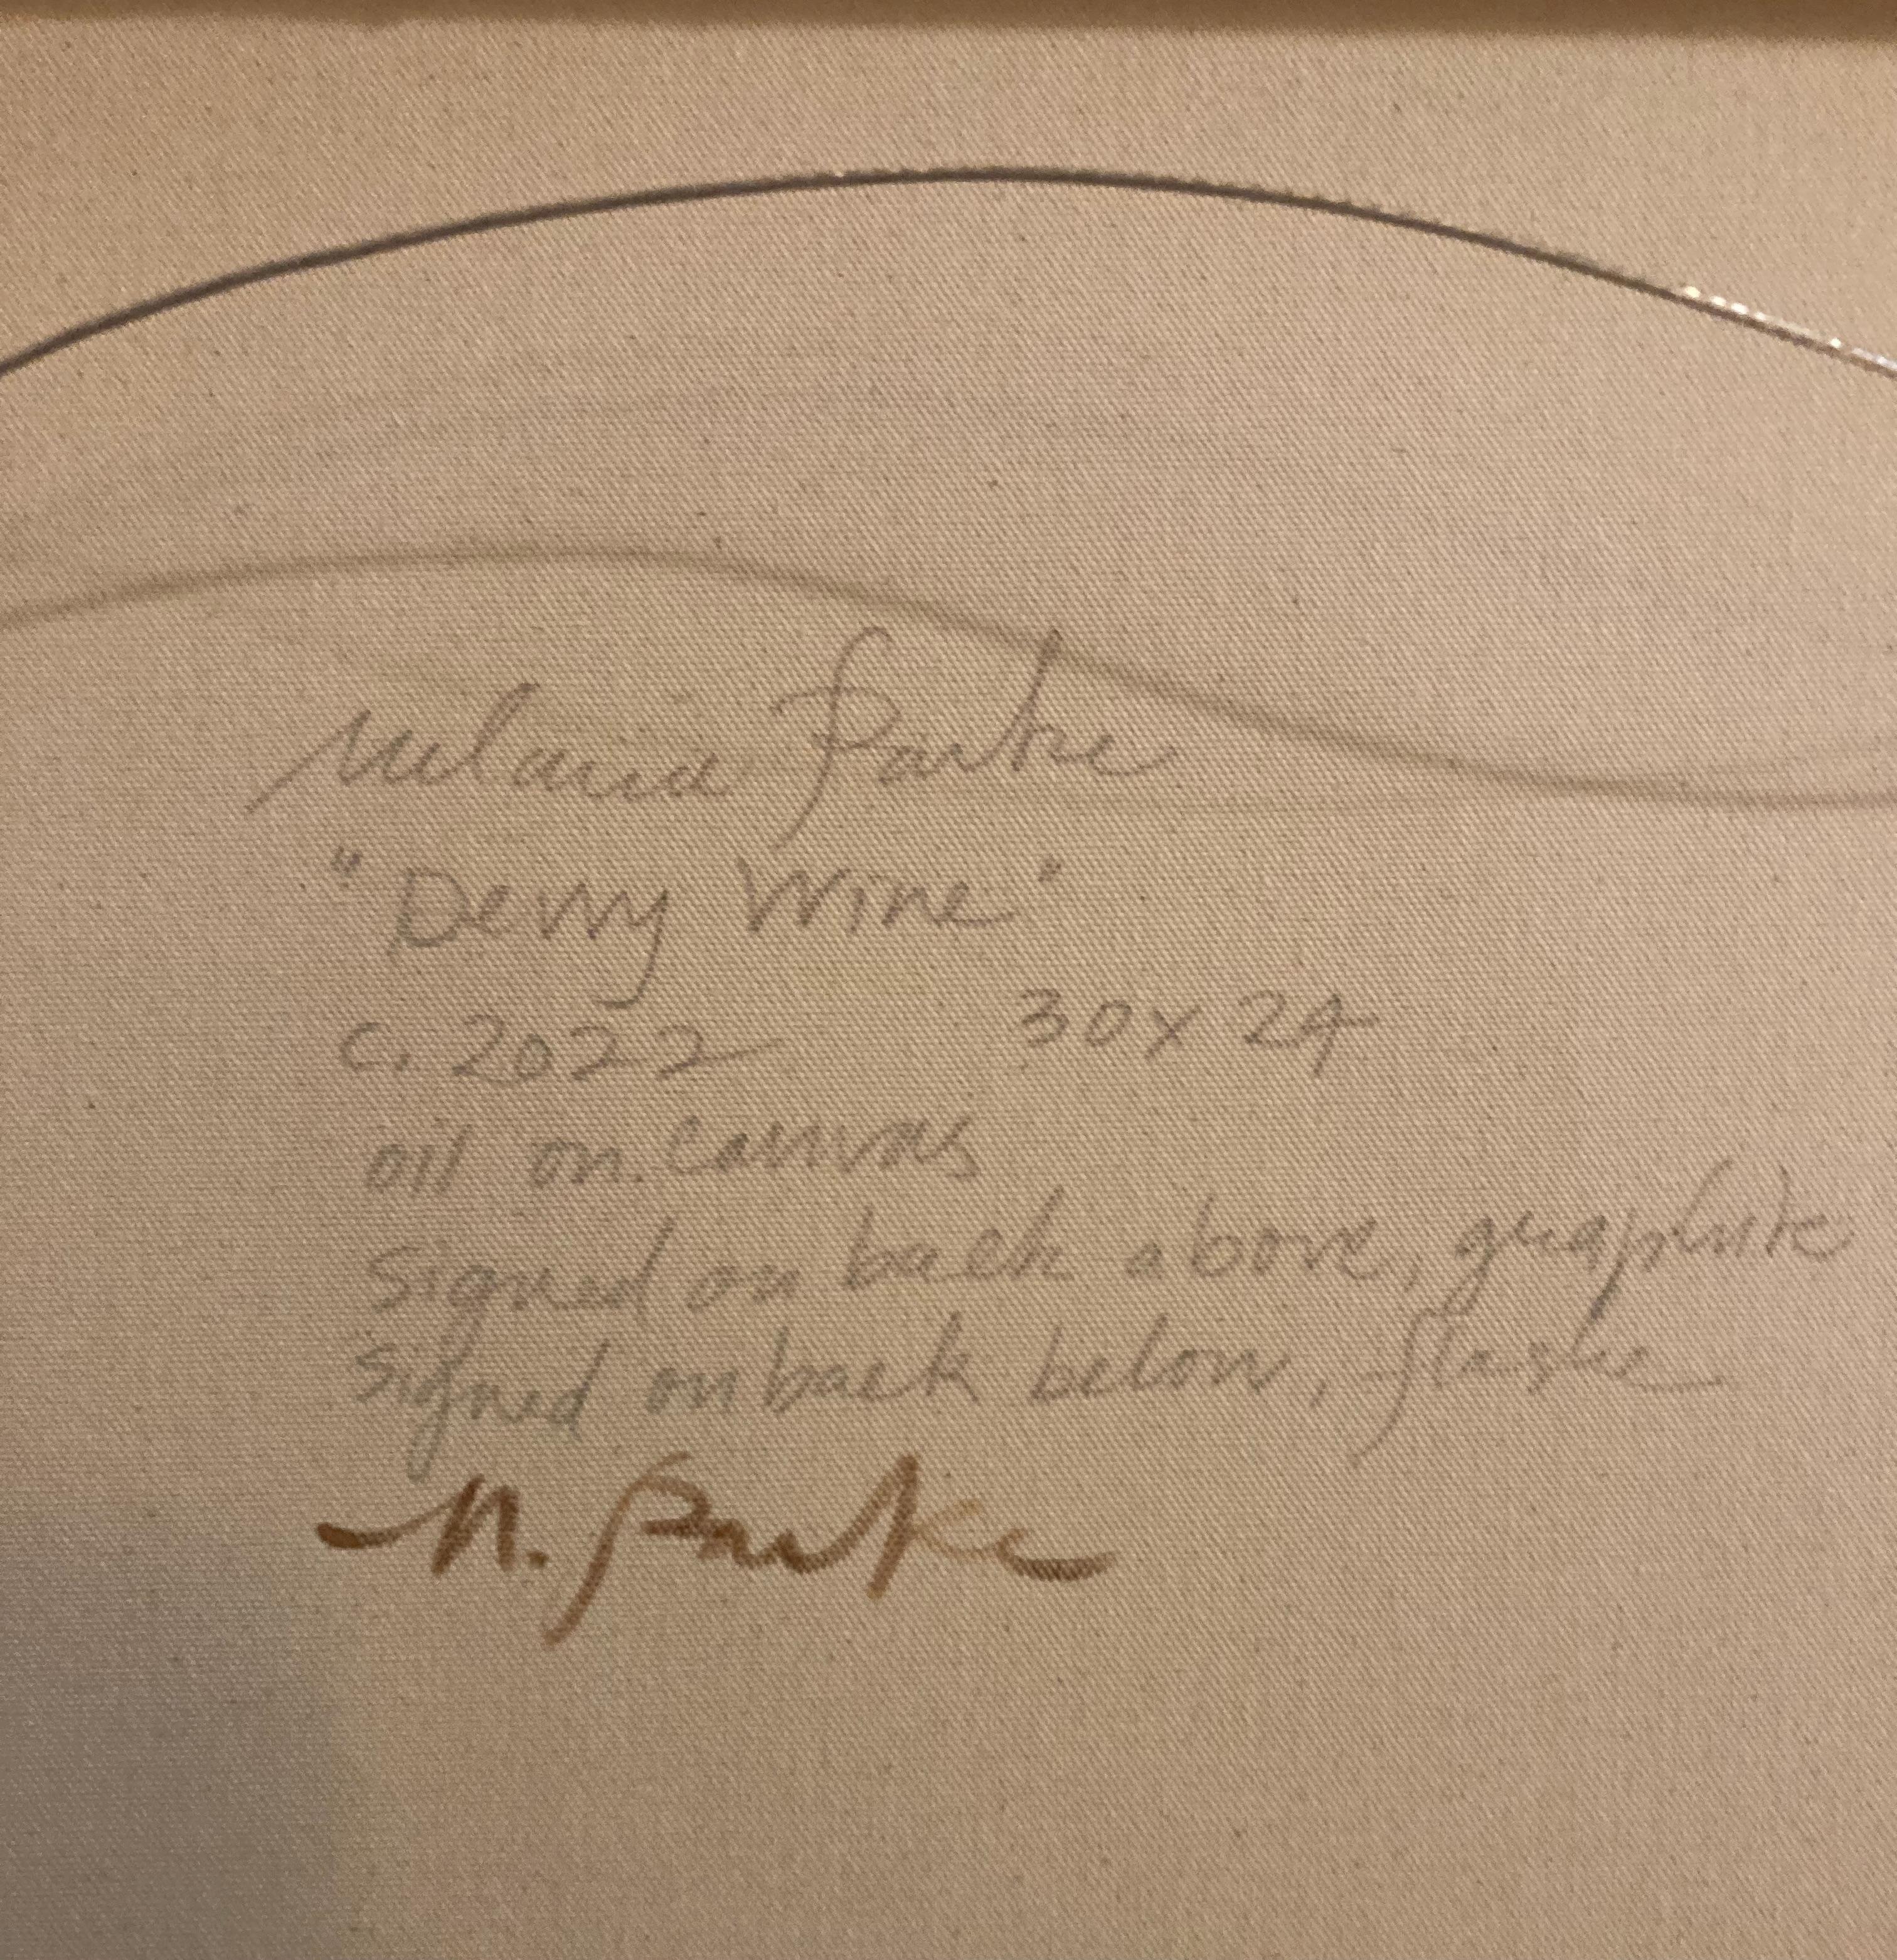 Melanie Parke
"Dewy Wine"
c. 2022 30x24
oil on canvas
Signed on back above, graphite
Signed on back below, flashe
M. Parke